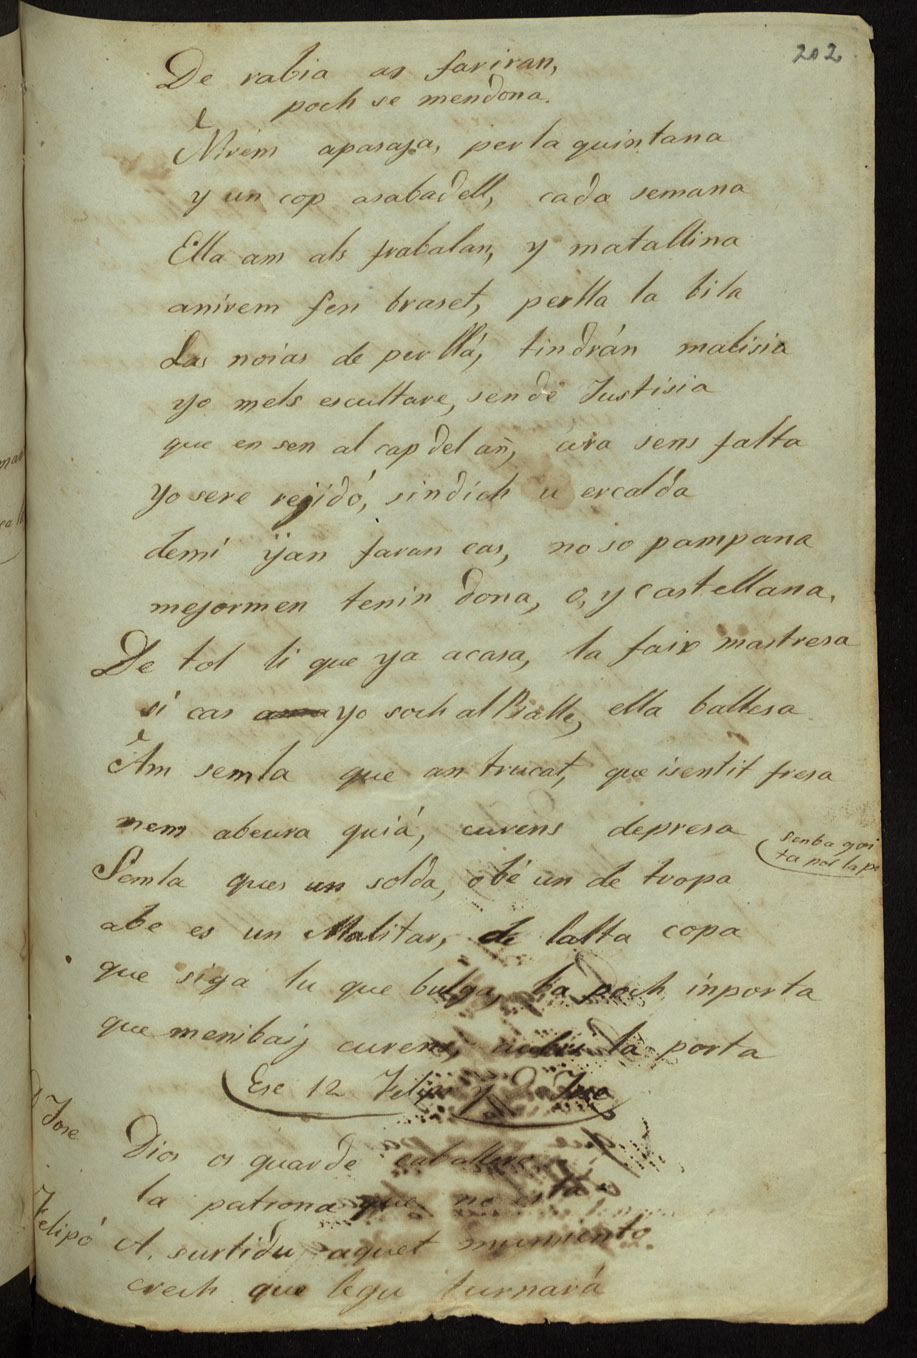 202
De rabia as fariran,
poch se mendona.
Nirem apasaja, perla quintana
y un cop asabadell, cada semana
Ella am als frabalans, y matallina
anirem fen braset, perlla la bila
Las noias de perllá, tindrán malisia
yo mels escultare, sende Justisia
que en sen al cap del añ, úra sens falta
Yo sere rejidó, sindich u ercalda
demi ÿan faran cas, no so pampana
mejormen tenin dona, o, y Castellana,
De tot li que ya acasa, la faix mastresa
si cas yo soch al Balle, ella ballesa
Am semla que an trucat, que isentit fresa
nem abeura quiá, curens depresa
(senba y oi
ta por la po
Semla ques un solda, obé un de tropa
abe es un Malitar, de lalta copa
que siga lu que bulga, ba poch inporta
que menibaij curens, la porta
Ese 12 Felipo y D Jose
D Jose
Dios os guarde caballero
la patrona que no está
Felipó
A. surtidu aquet mumiento
crech que legu turnará